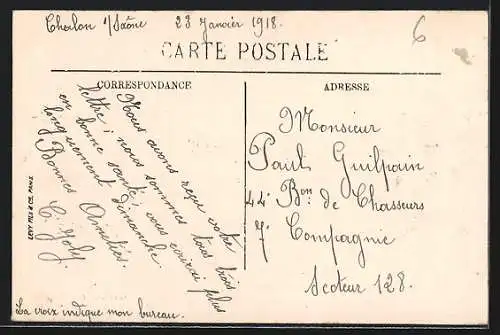 Chalon s/Saône 23 Janvier 1918.
6
CARTE POSTALE
CORRESPONDANCE
ADRESSE
Nous avons reçu votre
lettre ; nous sommes tous trois
en bonne santé, vous écrirai plus
longuement dimanche.
Bonnes Amitiés.
C. Joly.
Monsieur
Paul Guilpain
44e Bon de Chasseurs
7e Compagnie
Secteur 128.
LEVY FILS & CIE, PARIS
La croix indique mon bureau.